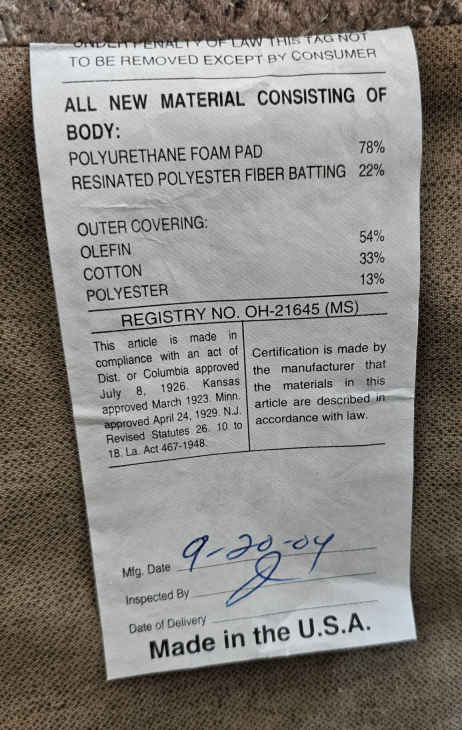 UNDER PENALTY OF LAW THIS TAG NOT
TO BE REMOVED EXCEPT BY CONSUMER
ALL NEW MATERIAL CONSISTING OF
BODY:
POLYURETHANE FOAM PAD 78%
RESINATED POLYESTER FIBER BATTING 22%
OUTER COVERING:
OLEFIN 54%
COTTON 33%
POLYESTER 13%
REGISTRY NO. OH-21645 (MS)
This article is made in
compliance with an act of
Dist. or Columbia approved
July 8, 1926. Kansas
approved March 1923. Minn.
approved April 24, 1929. N.J.
Revised Statutes 26. 10 to
18. La. Act 467-1948.
Certification is made by
the manufacturer that
the materials in this
article are described in
accordance with law.
Mfg. Date 9-20-04
Inspected By
Date of Delivery
Made in the U.S.A.